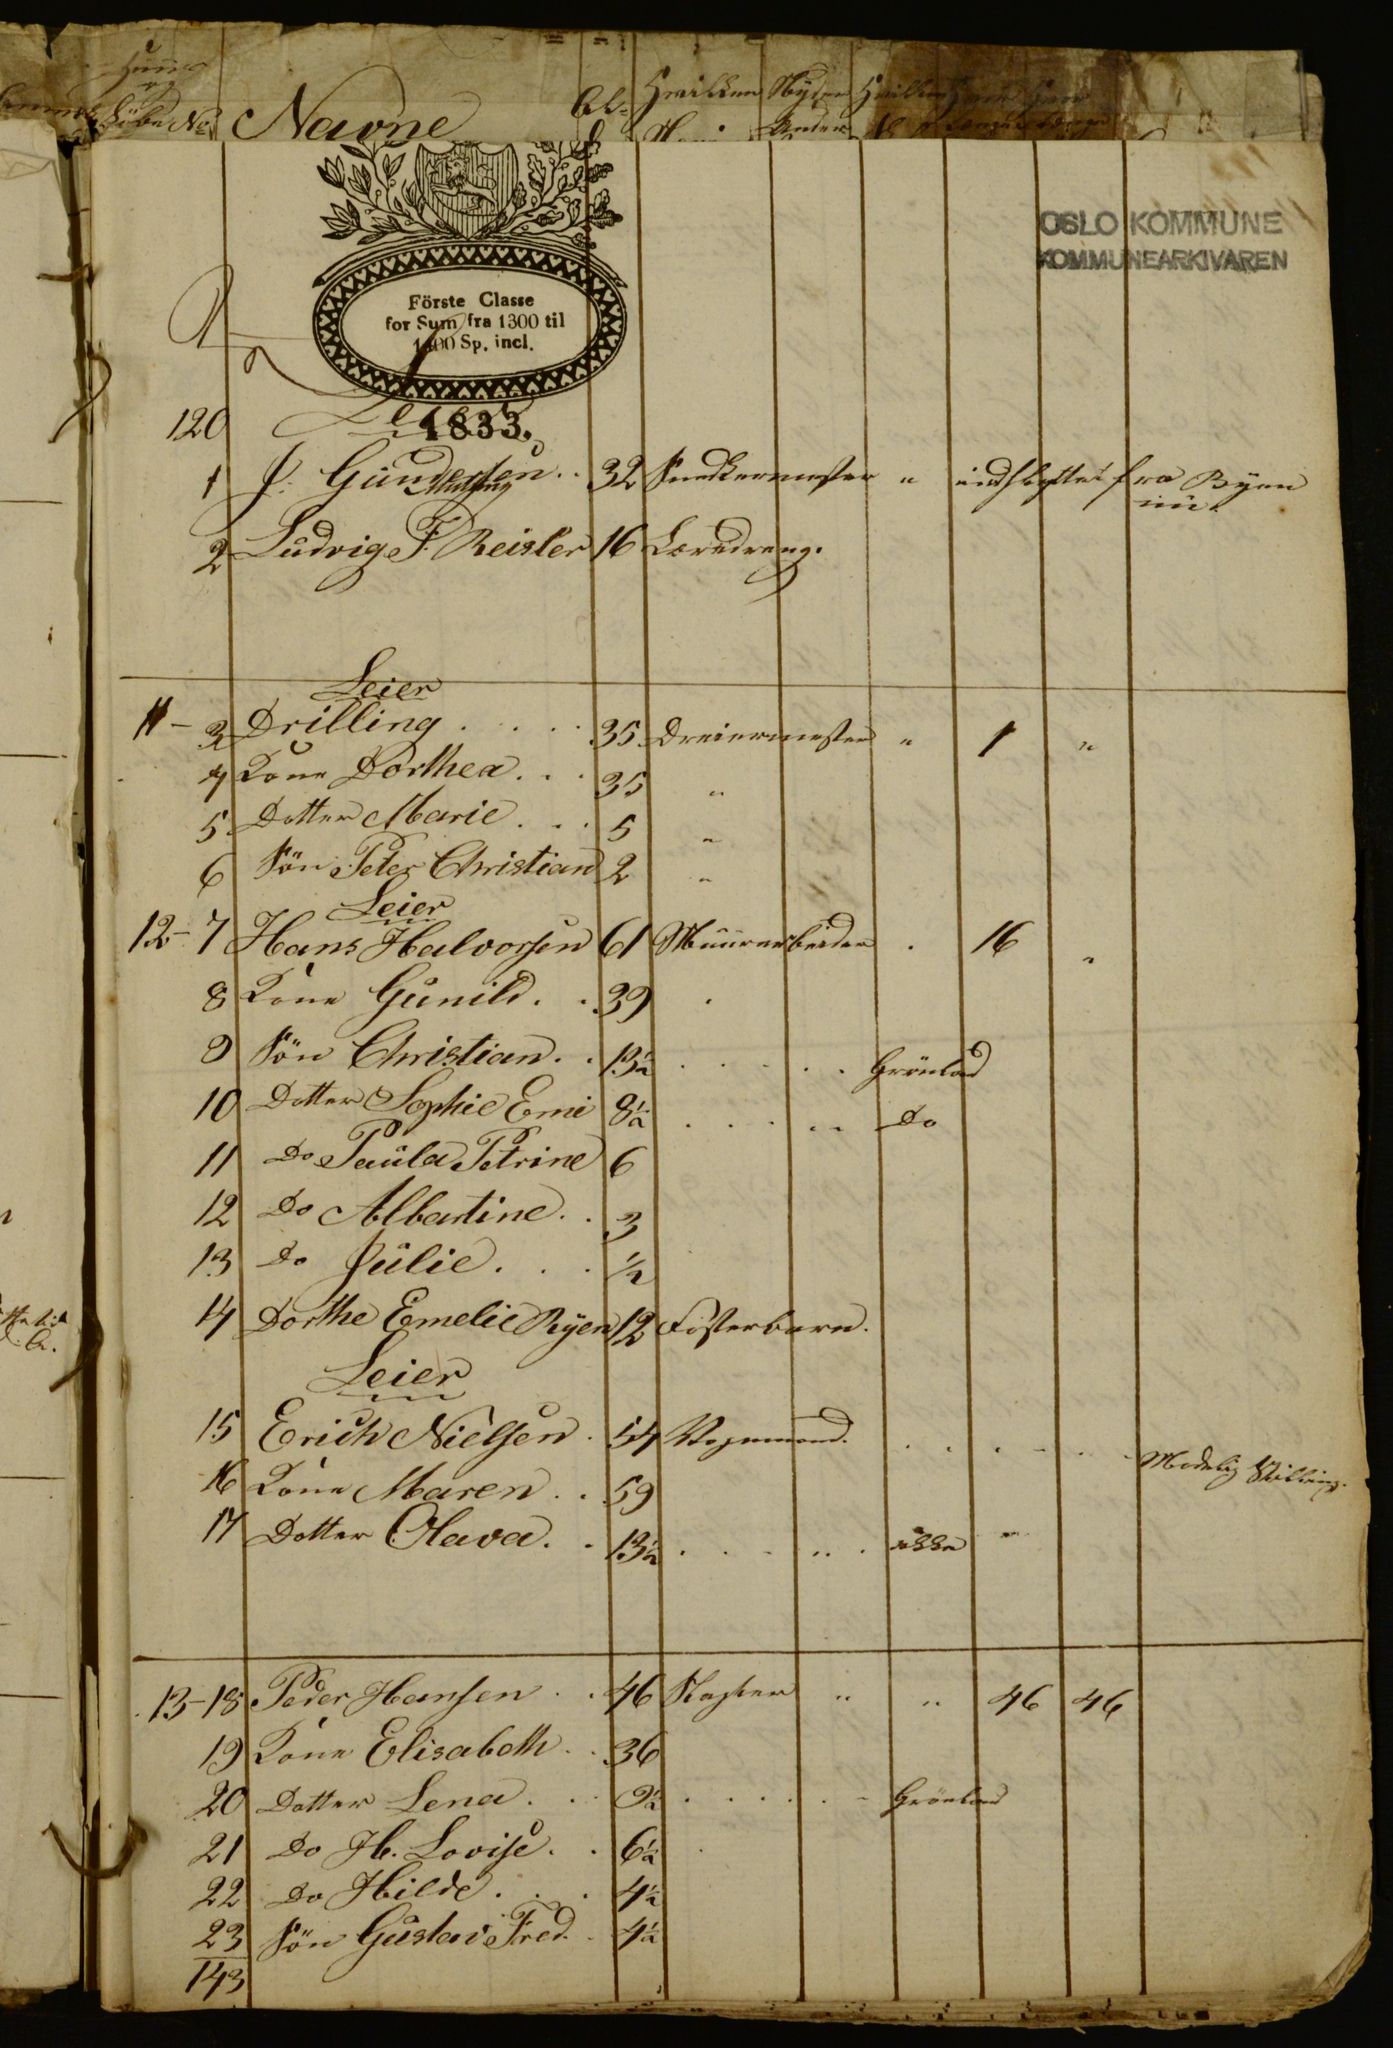 Navne Al-
OSLO KOMMUNE
KOMMUNEARKIVAREN
Förste Classe
for Sum fra 1300 til
1400 Sp. incl.
1833.
120
1 J. Gundersen 32 Snedkermester " indflyttet fra Byen
nu.
2 Ludvig F. Reisler 16 Læredreng.
Leier
11 - 3 Drilling 35 Dreiermester " 1 "
4 Kone Dorthea 35 "
5 Datter Marie 5 "
6 Sön Peter Christian 2 "
Leier
12 - 7 Hans Halvorsen 61 Muurarbeider 16 "
8 Kone Gunild 39
9 Sön Christian 13½ Grönland
10 Datter Sophie Emi 8½ Do
11 Do Paula Petrine 6
12 Do Albertine 3
13 Do Julie ½
14 Dorthe Emelie Ryen 12 Fosterbarn.
Leier
15 Erich Nielsen 54 Vognmand. Maadelig Stilling.
16 Kone Maren 59
17 Datter Olava 13½ ikke "
13 - 18 Peder Hansen 46 Slagter " " 46 46
19 Kone Elisabeth 36
20 Datter Lena 9½ Grönland
21 Do H. Lovise 6½
22 Do Hilde 4½
23 Sön Gustav Fred. 4½
143